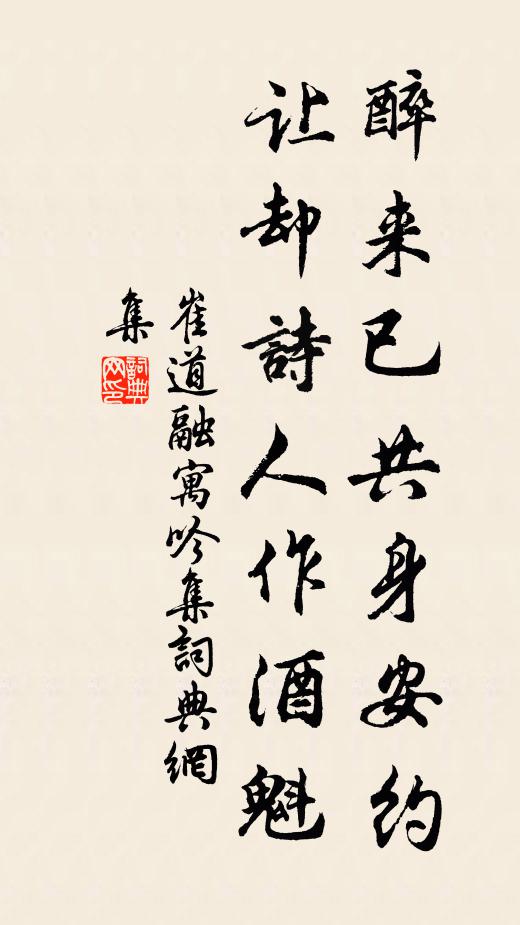 醉来已共身安约
让却詩人作酒魁
崔道融寓吟集詞典網
集
詞典網印